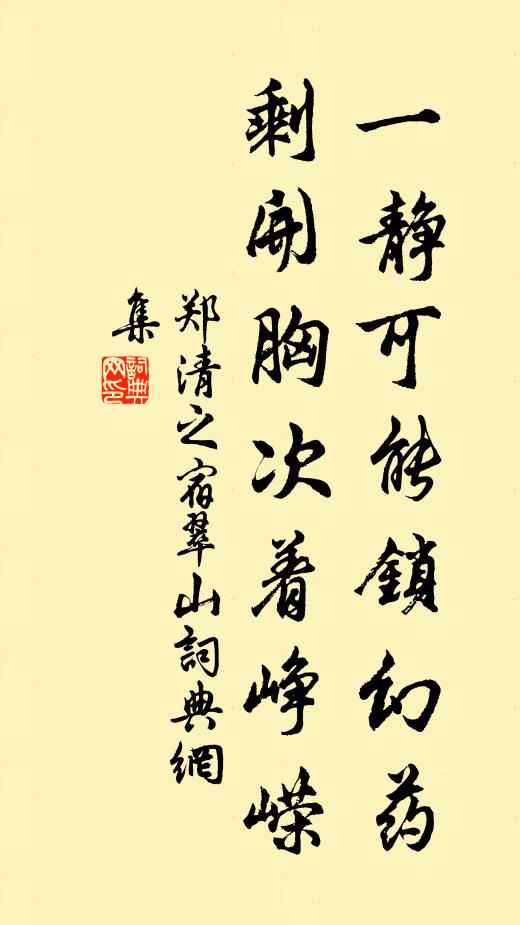 一静可能鎖幻药
剩開胸次着峥嵘
郑清之宿翠山詞典網
集
詞典网印